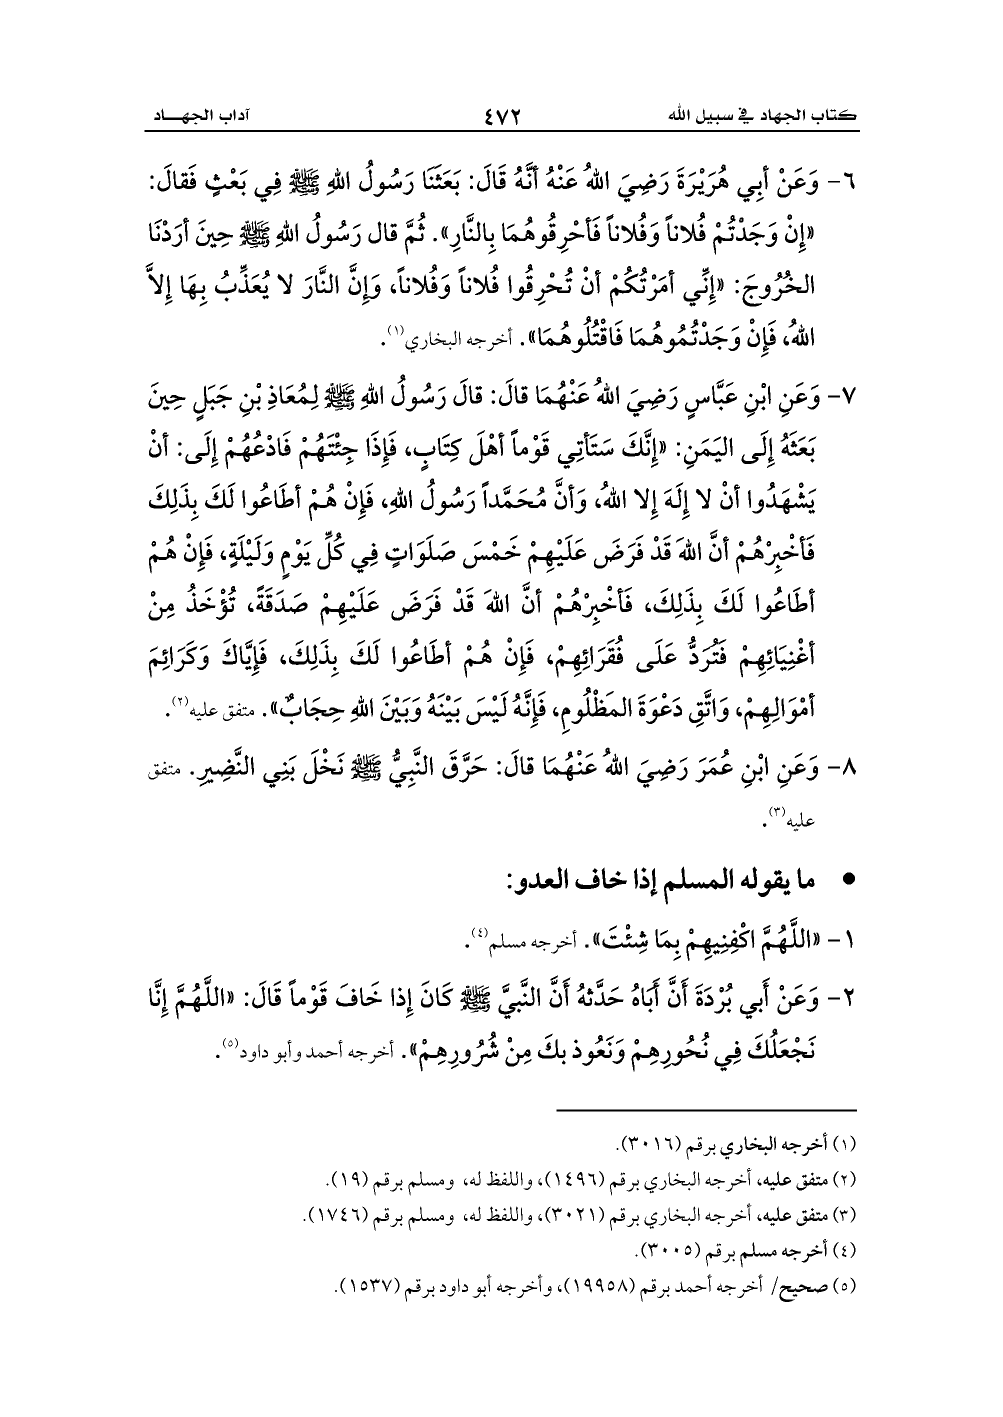 كتاب الجهاد في سبيل الله ٤٧٢ آداب الجهـــاد
٦- وَعَنْ أبِي هُرَيْرَةَ رَضِيَ اللهُ عَنْهُ أنَّهُ قَالَ: بَعَثَنَا رَسُولُ اللهِ ﷺ فِي بَعْثٍ فَقالَ:
«إِنْ وَجَدْتُمْ فُلاناً وَفُلاناً فَأحْرِقُوهُمَا بِالنَّارِ». ثُمَّ قال رَسُولُ اللهِ ﷺ حِينَ أرَدْنَا
الخُرُوجَ: «إِنِّي أمَرْتُكُمْ أنْ تُحْرِقُوا فُلاناً وَفُلاناً، وَإِنَّ النَّارَ لا يُعَذِّبُ بِهَا إِلاَّ
اللهُ، فَإِنْ وَجَدْتُمُوهُمَا فَاقْتُلُوهُمَا». أخرجه البخاري(١).
٧- وَعَنِ ابْنِ عَبَّاسٍ رَضِيَ اللهُ عَنْهُمَا قالَ: قالَ رَسُولُ اللهِ ﷺ لِمُعَاذِ بْنِ جَبَلٍ حِينَ
بَعَثَهُ إِلَى اليَمَنِ: «إِنَّكَ سَتَأتِي قَوْماً أهْلَ كِتَابٍ، فَإِذَا جِئْتَهُمْ فَادْعُهُمْ إِلَى: أنْ
يَشْهَدُوا أنْ لا إِلَهَ إِلا اللهُ، وَأنَّ مُحَمَّداً رَسُولُ اللهِ، فَإِنْ هُمْ أطَاعُوا لَكَ بِذَلِكَ
فَأخْبِرْهُمْ أنَّ اللهَ قَدْ فَرَضَ عَلَيْهِمْ خَمْسَ صَلَوَاتٍ فِي كُلِّ يَوْمٍ وَلَيْلَةٍ، فَإِنْ هُمْ
أطَاعُوا لَكَ بِذَلِكَ، فَأخْبِرْهُمْ أنَّ اللهَ قَدْ فَرَضَ عَلَيْهِمْ صَدَقَةً، تُؤْخَذُ مِنْ
أغْنِيَائِهِمْ فَتُرَدُّ عَلَى فُقَرَائِهِمْ، فَإِنْ هُمْ أطَاعُوا لَكَ بِذَلِكَ، فَإِيَّاكَ وَكَرَائِمَ
أمْوَالِهِمْ، وَاتَّقِ دَعْوَةَ المَظْلُومِ، فَإِنَّهُ لَيْسَ بَيْنَهُ وَبَيْنَ اللهِ حِجَابٌ». متفق عليه(٢).
٨- وَعَنِ ابْنِ عُمَرَ رَضِيَ اللهُ عَنْهُمَا قالَ: حَرَّقَ النَّبِيُّ ﷺ نَخْلَ بَنِي النَّضِيرِ. متفق
عليه(٣).
● ما يقوله المسلم إذا خاف العدو:
١- «اللَّهُمَّ اكْفِنِيهِمْ بِمَا شِئْتَ». أخرجه مسلم(٤).
٢- وَعَنْ أَبي بُرْدَةَ أَنَّ أَبَاهُ حَدَّثهُ أَنَّ النَّبيَّ ﷺ كَانَ إذا خَافَ قَوْماً قَالَ: «اللَّهُمَّ إنَّا
نَجْعَلُكَ فِي نُحُورِهِمْ وَنَعُوذ بكَ مِنْ شُرُورِهِمْ». أخرجه أحمد وأبو داود(٥).
(١) أخرجه البخاري برقم (٣٠١٦).
(٢) متفق عليه، أخرجه البخاري برقم (١٤٩٦)، واللفظ له، ومسلم برقم (١٩).
(٣) متفق عليه، أخرجه البخاري برقم (٣٠٢١)، واللفظ له، ومسلم برقم (١٧٤٦).
(٤) أخرجه مسلم برقم (٣٠٠٥).
(٥) صحيح/ أخرجه أحمد برقم (١٩٩٥٨)، وأخرجه أبو داود برقم (١٥٣٧).